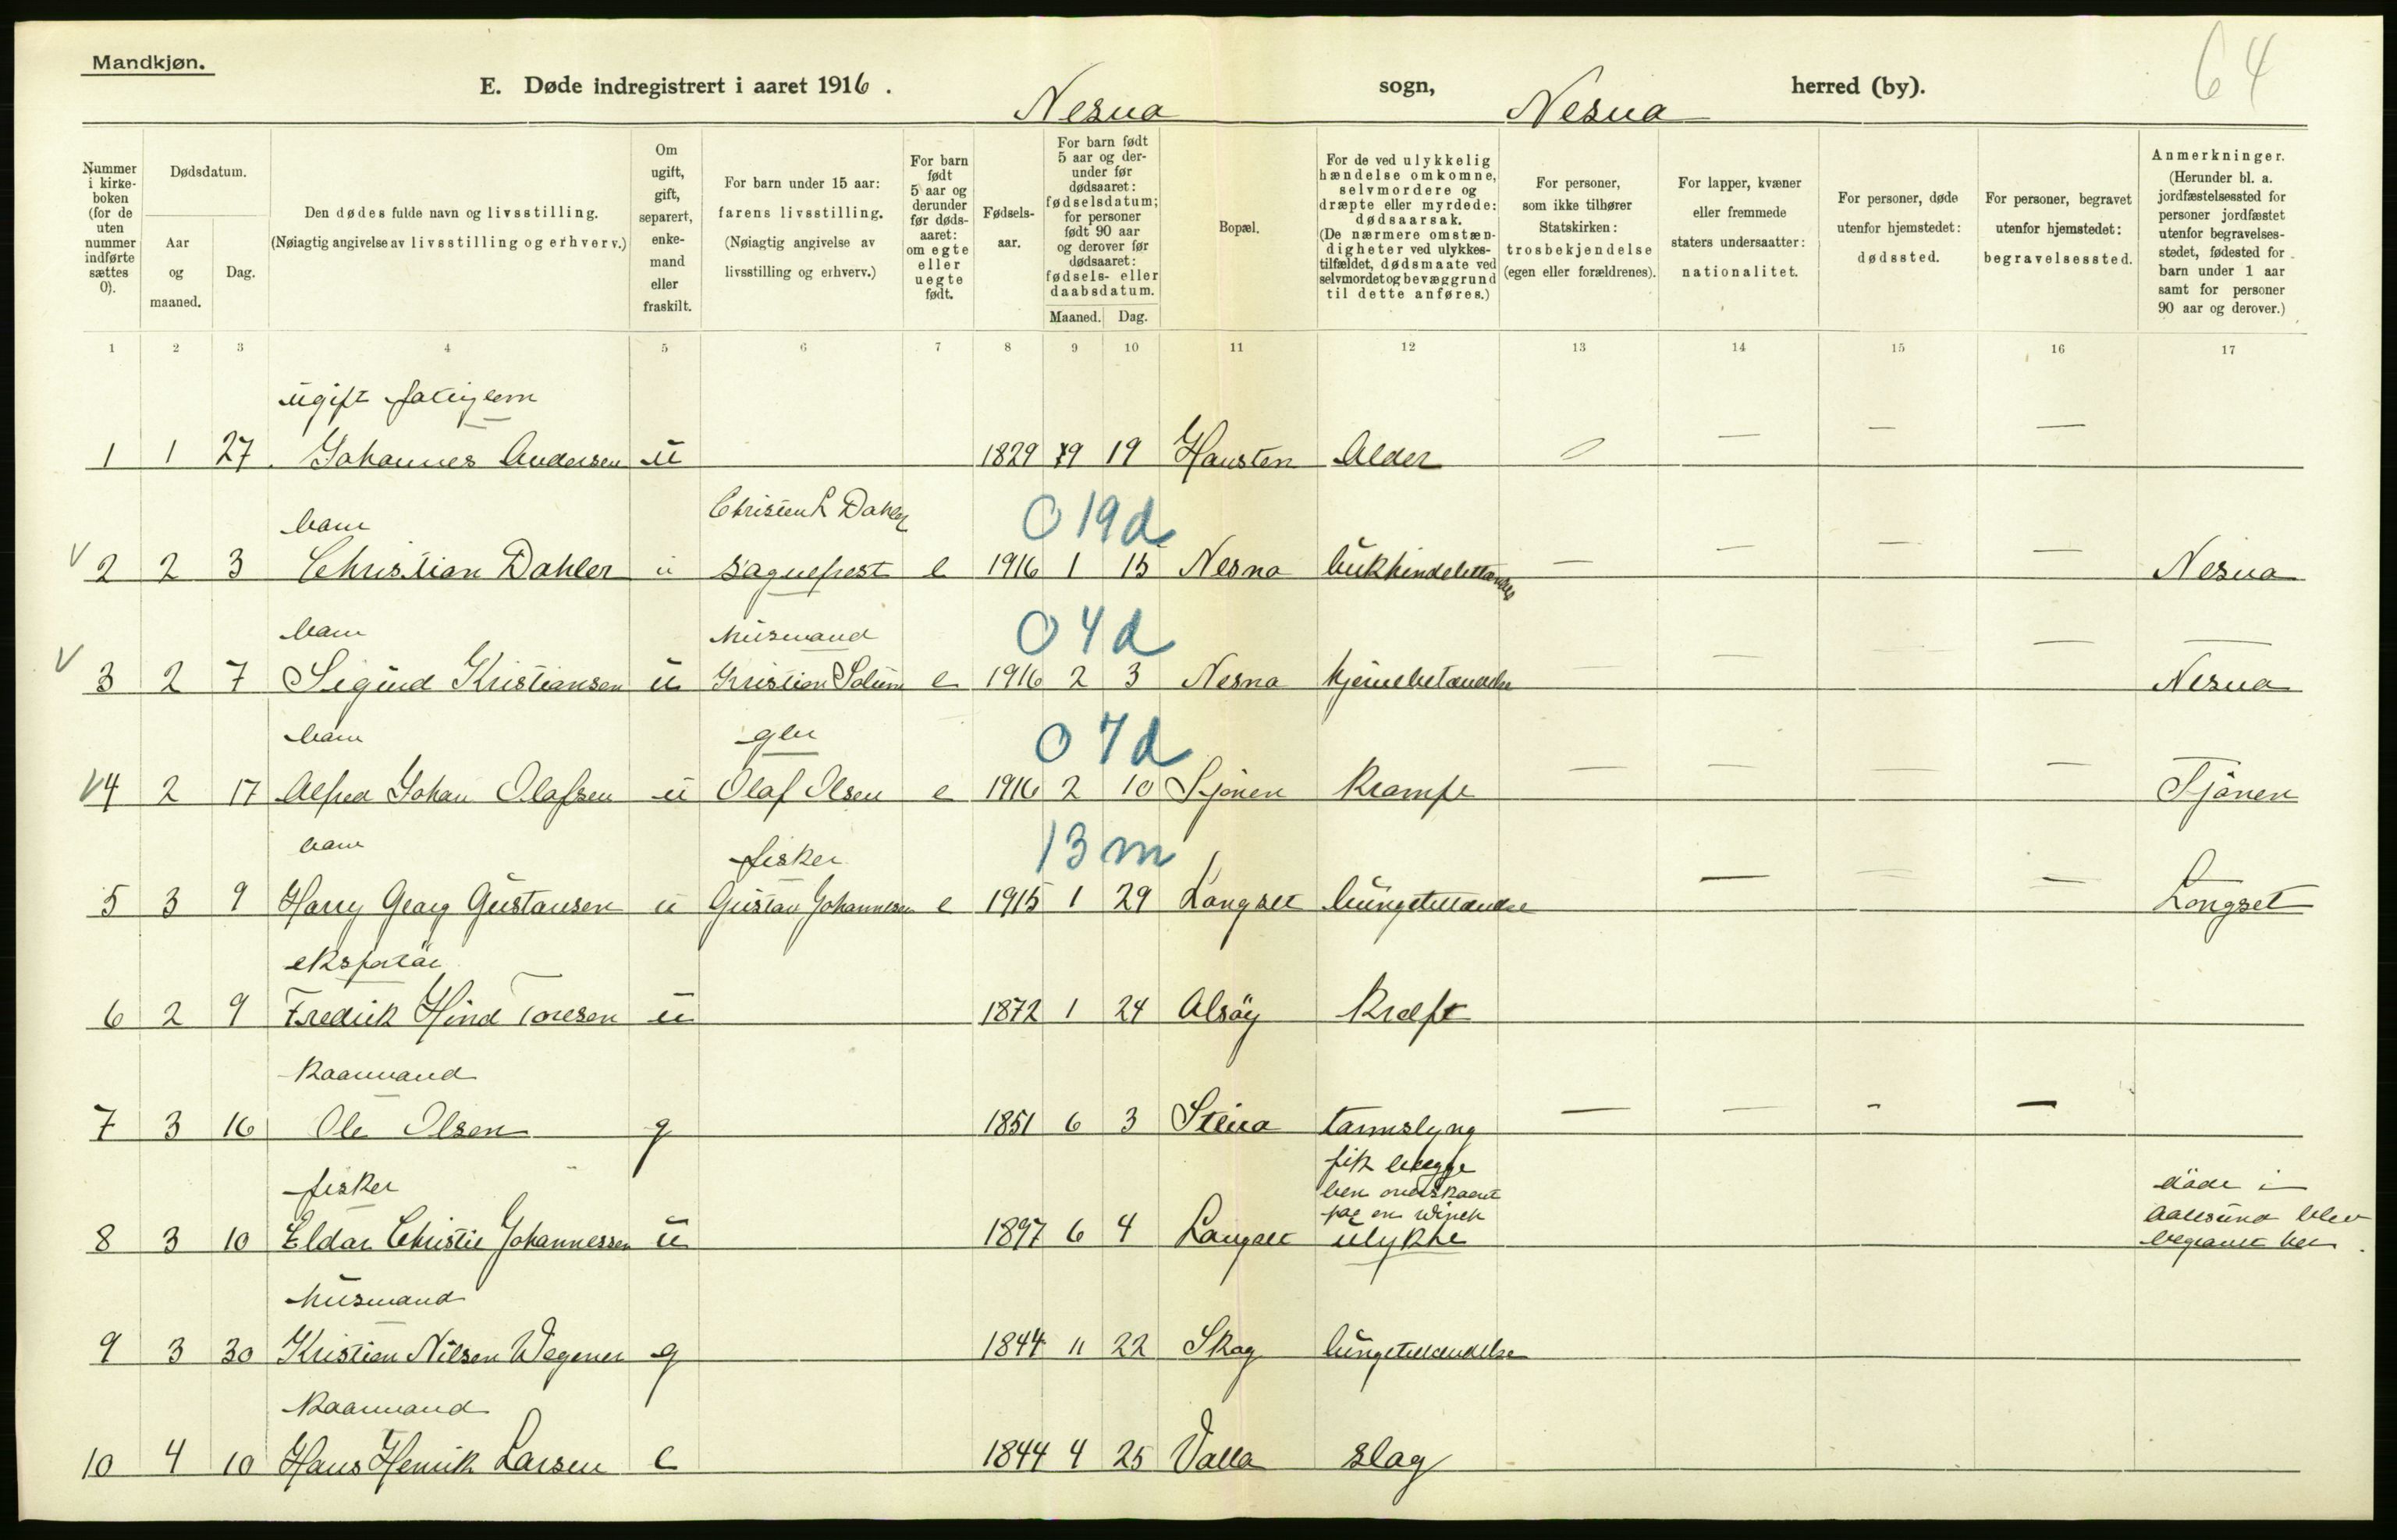 Mandkjøn.
64
E. Døde indregistrert i aaret 1916. Nesna sogn, Nesna herred (by).
Nummer i kirkeboken (for de uten nummer indførte sættes 0).
Dødsdatum.
Aar og maaned.
Dag.
Den dødes fulde navn og livsstilling.
(Nøiagtig angivelse av livsstilling og erhverv.)
Om ugift, gift, separert, enkemand eller fraskilt.
For barn under 15 aar: farens livsstilling.
(Nøiagtig angivelse av livsstilling og erhverv.)
For barn født 5 aar og derunder før dødsaaret: om egte eller uegte født.
Fødselsaar.
For barn født 5 aar og derunder før dødsaaret: fødselsdatum; for personer født 90 aar og derover før dødsaaret: fødsels- eller daabsdatum.
Maaned. Dag.
Bopæl.
For de ved ulykkelig hændelse omkomne, selvmordere og dræpte eller myrdede: dødsaarsak.
(De nærmere omstændigheter ved ulykkestilfældet, dødsmaate ved selvmordet og bevæggrund til dette anføres.)
For personer, som ikke tilhører Statskirken: trosbekjendelse (egen eller forældrenes).
For lapper, kvæner eller fremmede staters undersaatter: nationalitet.
For personer, døde utenfor hjemstedet: dødssted.
For personer, begravet utenfor hjemstedet: begravelsessted.
Anmerkninger.
(Herunder bl. a. jordfæstelsessted for personer jordfæstet utenfor begravelsesstedet, fødested for barn under 1 aar samt for personer 90 aar og derover.)
1 2 3 4 5 6 7 8 9 10 11 12 13 14 15 16 17
ugift fattiglem
1 1 27 Johannes Andersen u 1829 9 19 Hausten Alder — — —
barn Christen L Dahler 019d
V 2 2 3 Christian Dahler u Sogneprest e 1916 1 15 Nesna bukhindebetændelse — — — — Nesna
barn husmand 04d
V 3 2 7 Sigurd Kristiansen u Kristian Solum e 1916 2 3 Nesna hjernebetændelse — — — — Nesna
barn gbr 07d
V 4 2 17 Alfred Johan Olafsen u Olaf Olsen e 1916 2 10 Sjonen Krampe — — — — Sjonen
barn fisker 13m
5 3 9 Harry Georg Gustavsen u Gustav Johannesen e 1915 1 29 Langset lungebetændelse — — — Longset
ekspeditør
6 2 9 Fredrik Hind Toresen u 1872 1 24 Alsøy Kræft
Kaarmand
7 3 16 Ole Olsen g 1851 6 3 Steira tarmslyng — — - —
fisker fik begge
ben overskaaret
paa en winch
døde i
Aalesund blev
begravet her.
8 3 10 Eldar Christie Johannessen u 1897 6 4 Langset ulykke
husmand
9 3 30 Kristian Nilsen Wegener g 1844 11 22 Skog lungebetændelse
Kaarmand
10 4 10 Hans Henrik Larsen e 1844 4 25 Valla slag